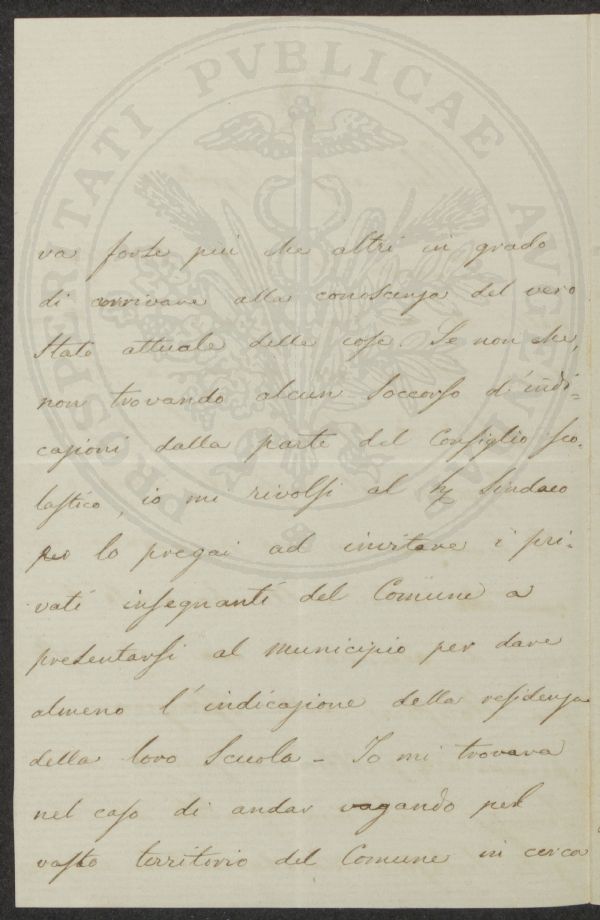 PROSPERITATI PVBLICAE AVGENDAE
va forse più che altri in grado
di arrivare alla conoscenza del vero
stato attuale delle cose. Se non che,
non trovando alcun soccorso d'indi=
cazioni dalla parte del Consiglio sco-
lastico, io mi rivolsi al Sindaco
lo pregai ad invitare i pri-
vati insegnanti del Comune a
presentarsi al Municipio per dare
almeno l'indicazione della residenza
della loro Scuola - Io mi trovava
nel caso di andar vagando pel
vasto territorio del Comune in cerca